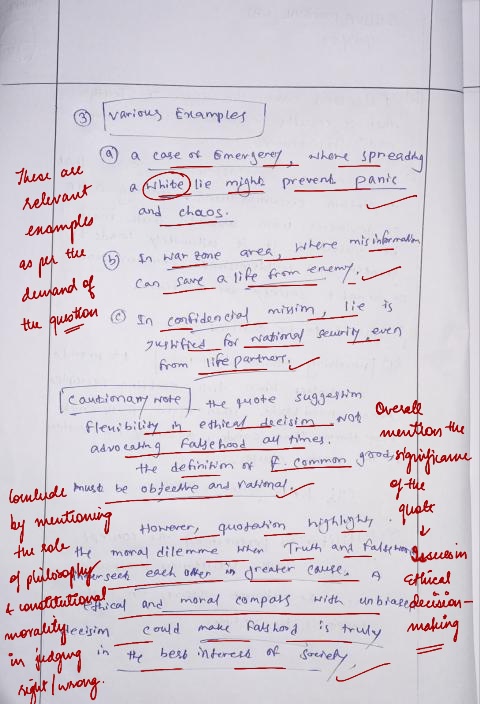 ③ Various Examples
ⓐ a case of Emergency, where spreading
a white lie might prevent panic
and chaos.
These are
relevant
examples
as per the
demand of
the question
ⓑ In war zone area, where misinformation
can save a life from enemy.
ⓒ In confidencial missim, lie is
justified for National security even
from life partners.
Cautionary Note the quote suggestion
flexibility in ethical decisim not
advocating falsehood all times.
the definition of common good,
must be objective and rational.
Overall
mention the
significance
of the
quote
↓
Issues in
Ethical
decision-
making
However, quotation highlights
the moral dilemme when Truth and
each other in greater cause. A
Ethical and moral compass with unbiased
decisim could make falshood is truly
in the best interest of society.
Conclude
by mentioning
the role
of philosophy
+ constitutional
morality
in judging
right/wrong.